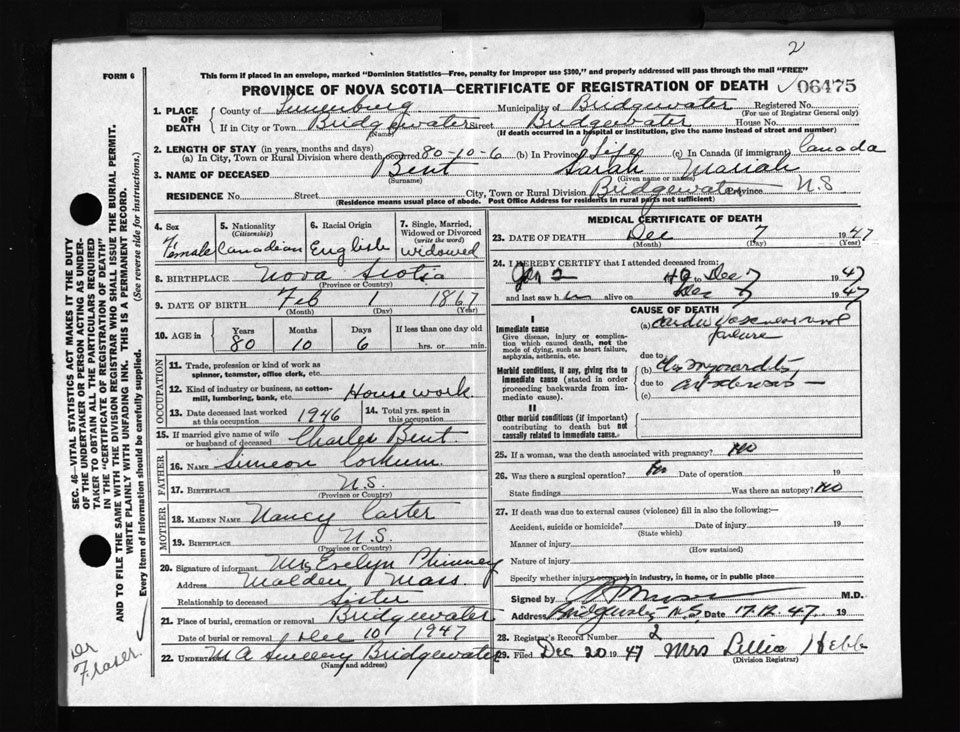 2
FORM 6
This form if placed in an envelope, marked "Dominion Statistics—Free, penalty for improper use $300," and properly addressed will pass through the mail "FREE"
PROVINCE OF NOVA SCOTIA—CERTIFICATE OF REGISTRATION OF DEATH 06475
1. PLACE OF DEATH County of Lunenburg Municipality of Bridgewater Registered No.
(For use of Registrar General only)
If in City or Town Bridgewater Street Bridgewater House No.
(Name) (If death occurred in a hospital or institution, give the name instead of street and number)
2. LENGTH OF STAY (in years, months and days)
(a) In City, Town or Rural Division where death occurred 80-10-6 (b) In Province Life (c) In Canada (if immigrant) Canada
3. NAME OF DECEASED Bent Sarah Mariah
(Surname) (Given name or names)
RESIDENCE No. Street City, Town or Rural Division Bridgewater Province N.S
(Residence means usual place of abode. Post Office Address for residents in rural parts not sufficient)
4. Sex Female
5. Nationality (Citizenship) Canadian
6. Racial Origin English
7. Single, Married, Widowed or Divorced (write the word) Widowed
8. BIRTHPLACE Nova Scotia
(Province or Country)
9. DATE OF BIRTH Feb 1 1867
(Month) (Day) (Year)
10. AGE in Years Months Days If less than one day old
80 10 6 hrs. or min.
OCCUPATION
11. Trade, profession or kind of work as spinner, teamster, office clerk, etc.
12. Kind of industry or business, as cotton-mill, lumbering, bank, etc. Housework
13. Date deceased last worked at this occupation 1946 14. Total yrs. spent in this occupation
15. If married give name of wife or husband of deceased Charles Bent
FATHER
16. NAME Simeon Corkum
17. BIRTHPLACE N.S.
(Province or Country)
MOTHER
18. MAIDEN NAME Nancy Carter
19. BIRTHPLACE N.S.
(Province or Country)
20. Signature of informant Mrs Evelyn Phinney
Address Malden Mass.
Relationship to deceased Sister
21. Place of burial, cremation or removal Bridgewater
Date of burial or removal Dec 10 1947
22. UNDERTAKER M A Sweeny Bridgewater
(Name and address)
MEDICAL CERTIFICATE OF DEATH
23. DATE OF DEATH Dec 7 1947
(Month) (Day) (Year)
24. I HEREBY CERTIFY that I attended deceased from:
Jan 2 to Dec 7 1947
and last saw h alive on Dec 7 1947
CAUSE OF DEATH
I
Immediate cause
Give disease, injury or complication which caused death, not the mode of dying, such as heart failure, asphyxia, asthenia, etc.
(a) failure
due to
Morbid conditions, if any, giving rise to immediate cause (stated in order proceeding backwards from immediate cause).
(b)
due to
(c)
II
Other morbid conditions (if important) contributing to death but not causally related to immediate cause.
25. If a woman, was the death associated with pregnancy? No
26. Was there a surgical operation? No Date of operation 19
State findings Was there an autopsy? No
27. If death was due to external causes (violence) fill in also the following:—
Accident, suicide or homicide? Date of injury 19
(State which)
Manner of injury
(How sustained)
Nature of injury
Specify whether injury occurred in industry, in home, or in public place
Signed by M.D.
Address Bridgewater N.S Date 17.12.47. 19
28. Registrar's Record Number 2
29. Filed Dec 20 1947 Mrs Lillia Hebb
(Division Registrar)
SEC. 46—VITAL STATISTICS ACT MAKES IT THE DUTY
OF THE UNDERTAKER OR PERSON ACTING AS UNDER-
TAKER TO OBTAIN ALL THE PARTICULARS REQUIRED
IN THE "CERTIFICATE OF REGISTRATION OF DEATH"
AND TO FILE THE SAME WITH THE DIVISION REGISTRAR WHO SHALL ISSUE THE BURIAL PERMIT.
WRITE PLAINLY WITH UNFADING INK. THIS IS A PERMANENT RECORD.
Every item of information should be carefully supplied. (See reverse side for instructions.)
Dr
Fraser.